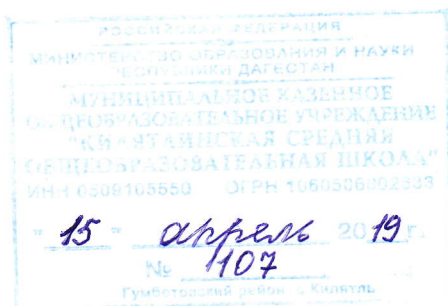 РОССИЙСКАЯ ФЕДЕРАЦИЯ
МИНИСТЕРСТВО ОБРАЗОВАНИЯ И НАУКИ
РЕСПУБЛИКИ ДАГЕСТАН
МУНИЦИПАЛЬНОЕ КАЗЕННОЕ
ОБЩЕОБРАЗОВАТЕЛЬНОЕ УЧРЕЖДЕНИЕ
"КИЛЯТЛИНСКАЯ СРЕДНЯЯ
ОБЩЕОБРАЗОВАТЕЛЬНАЯ ШКОЛА"
ИНН 0509105550 ОГРН
"15" апрель 2019 г.
№ 107
Гумбетовский район с. Килятль